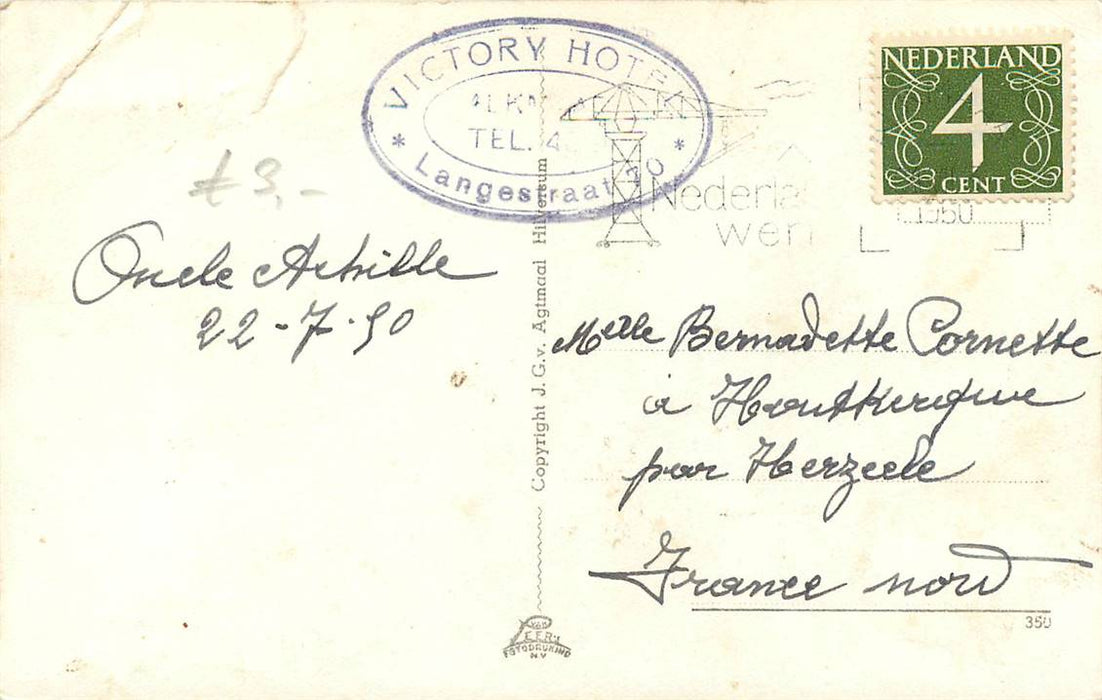 VICTORY HOTEL
TEL. 4
* Langestraat *
NEDERLAND
4
CENT
Nederla
wer
1950
£ 3,-
Oncle Achille
22-7-50
Copyright J. G. v. Agtmaal Hilversum
Melle Bernadette Cornette
à Houtkerque
par Herzeele
France nord
350
VAN
LEER'S
FOTODRUKIND
N.V